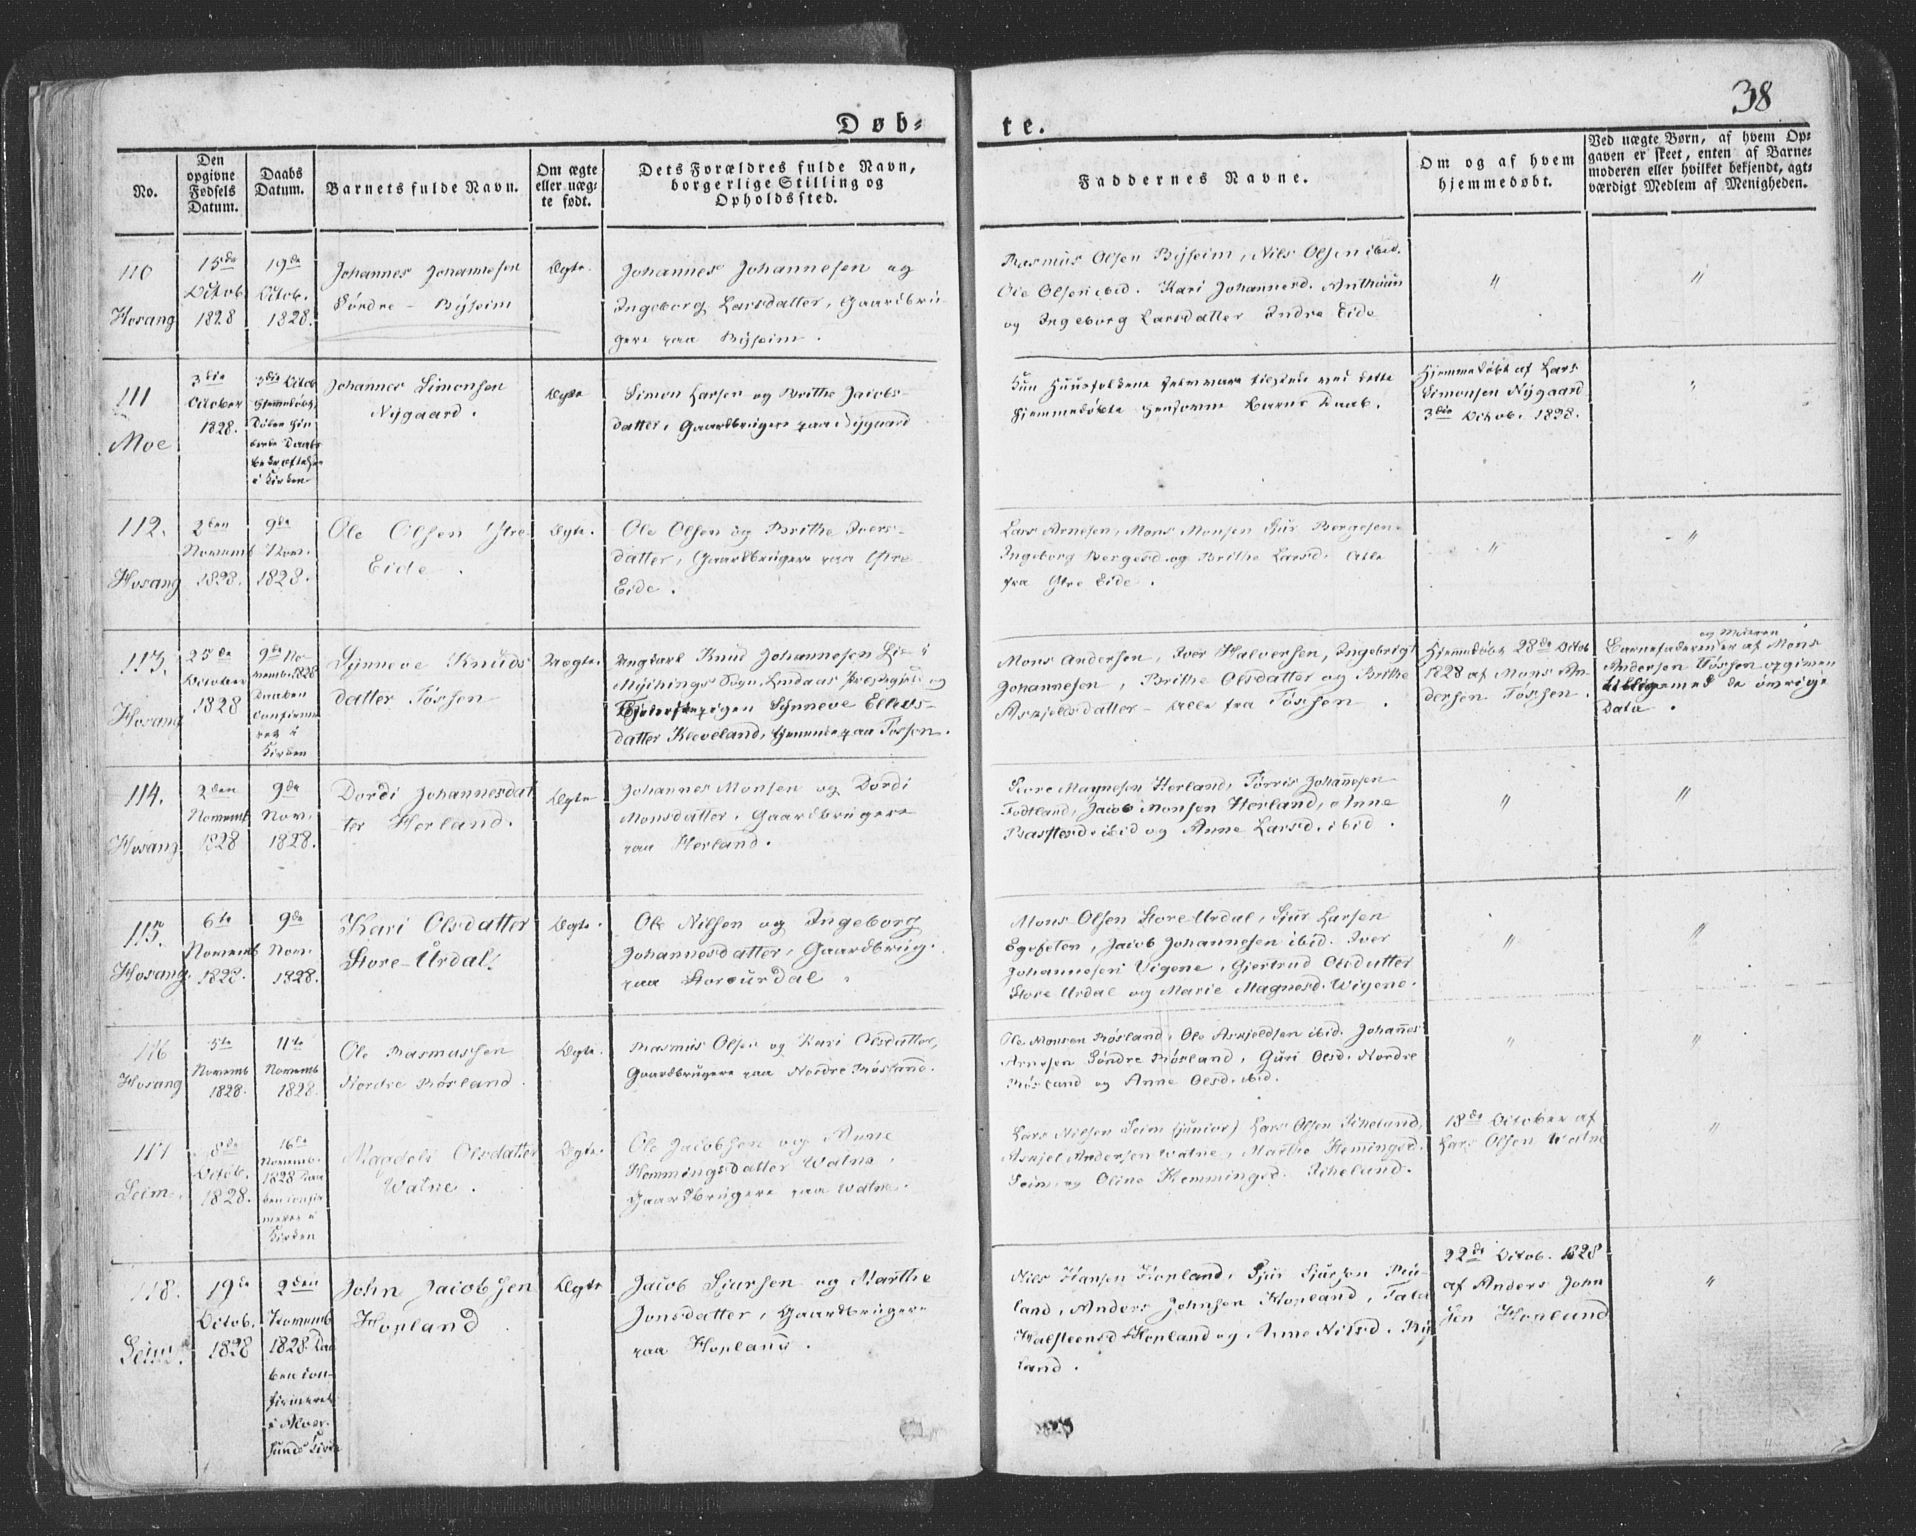 38
Døb-
te.
No.
Den
opgivne
Fødsels
Datum.
Daabs
Datum.
Barnets fulde Navn.
Om ægte
eller uæg-
te født.
Dets Forældres fulde Navn,
borgerlige Stilling og
Opholdssted.
Faddernes Navne.
Om og af hvem
hjemmedøbt.
Ved uægte Børn, af hvem Op-
gaven er skeet, enten af Barne-
moderen eller hvilket bekjendt, agt-
værdigt Medlem af Menigheden.
110
Hosang
15de
Octob.
1828
19de
Octob.
1828.
Johannes Johannesen
Søndre - Bysheim
Ægte.
Johannes Johannesen og
Ingeborg Larsdatter, Gaardbru-
gere paa Bysheim.
Rasmus Olsen Bysheim, Nils Olsen ibid.
Ole Olsen ibid. Kari Johannesd.
og Ingeborg Larsdatter Indre Eide
"
"
111
Moe
3die
October
1828.
3die Octob.
hjemmedøbt,
Daabs
bekræftelse
i Kirken
Johannes Simonsen
Nygaard.
Ægte
Simon Larsen og Brithe Jacobs-
datter, Gaardbrugere paa Nygaard
Kun Huusfolkene vare tilstede ved dette
hjemmedøbte Barns Daab.
Hjemmedøbt af Lars
Simonsen Nygaard
3die Octob. 1828.
"
112.
Hosang
2den
Novemb
1828.
9de
Nov.
1828.
Ole Olsen Ytre
Eide.
Ægte.
Ole Olsen og Brithe Ivers-
datter, Gaardbrugere paa Ytre
Eide.
Lars Arnesen, Mons Monsen Sjur Bergesen
Ingeborg Bergesd. og Brithe Larsd. Alle
fra Ytre Eide.
"
"
113.
Hosang
25de
October
1828
9de No-
vemb. 1828
Daaben
confirme-
ret i
Kirken
Synneve Knuds
datter Tøssen
Uægte.
Ungkarl Knud Johannesen Lie i
Myhings Sogn, Lindaas Præstegjeld og
pigen Synneve Ellevs-
datter Kleveland, tjenende paa Tøssen.
Mons Andersen, Iver Halversen, Ingebrigt
Johannesen, Brithe Olsdatter og Brithe
Askjellsdatter - Alle fra Tøssen.
Hjemmedøbt 28de Octob
1828 af Mons An-
dersen Tøssen.
og Moderen
Barnefaderen er af Mons
Andersen Tøssen opgiven
tilligemed de øvrige
Data.
114.
Hosang
2den
Novemb
1828
9de
Nov.
1828.
Dordi Johannesdat
ter Herland.
Ægte
Johannes Monsen og Dordi
Monsdatter, Gaardbrugere
paa Herland.
Store Magnesen Herland, Tørris Johannesen
Fodtland, Jacob Monsen Herland, Anne
ibid og Anne Larsd. ibid.
"
"
115.
Hosang.
6te
Novemb
1828.
9de
Nov.
1828.
Kari Olsdatter
Store-Urdal.
Ægte.
Ole Nilsen og Ingeborg
Johannesdatter, Gaardbrug.
paa Storeurdal.
Mons Olsen Store Urdal, Sjur Larsen
Egeseten, Jacob Johannesen ibid. Iver
Johannesen Vigene, Giertrud Olsdatter
Store Urdal og Marie Magnesd. Wigene.
"
"
116
Hosang
5te
Novemb
1828.
11te
Novemb
1828.
Ole Rasmussen
Nordre Røsland.
Ægte.
Rasmus Olsen og Kari Olsdatter,
Gaardbrugere paa Nordre Røsland.
Ole Monsen Røsland, Ole Askjeldsen ibid. Johannes
Arnesen Søndre Røsland, Guri Olsd. Nordre
Røsland og Anne Olsd. ibid.
"
"
117
Seim.
8de
Octob.
1828.
16de
Novemb.
1828 Daa-
ben confir-
meret i
Kirken
Magdeli Olsdatter
Watne.
Ægte.
Ole Jacobsen og Anne
Hemmingsdatter Watne,
Gaardbrugere paa Watne.
Lars Nilsen Seim (junior) Lars Olsen Ikeland,
Askjel Andersen Watne, Marthe Hemingsd.
Seim og Oline Hemmingsd. Ikeland.
18de October af
Lars Olsen Watne
"
118.
Seim.
19de
Octob.
1828
2den
Novemb
1828. Daa-
ben con-
firmeret
i Alver-
sunds Kirke
John Jacobsen
Hopland
Ægte
Jacob Sjursen og Marthe
Jonsdatter, Gaardbrugere
paa Hopland.
Nils Hansen Hopland, Sjur Sjursen Ry-
land, Anders Johnsen Hopland,
Halsteensd Hopland og Anne Nilsd. Ry
land.
22de Octob. 1828
af Anders John
sen Hopland
"